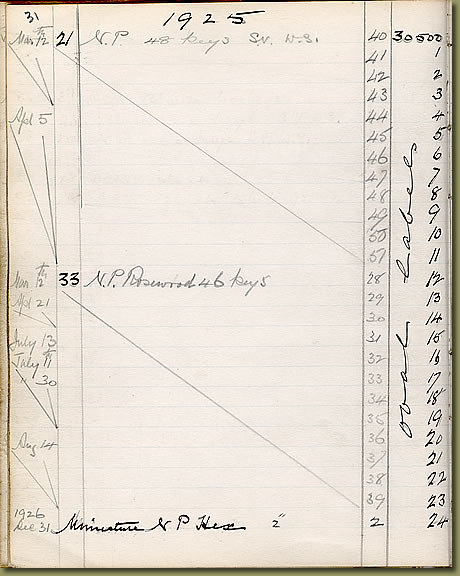 31 1925
Mar 12th 21 N.P. 48 keys Sv. W.S. 40 30500
41 1
42 2
43 3
Apl 5 44 4
45 5
46 6
47 7
48 8
49 9
50 10
51 11
Mar 12th 33 N.P. Rosewood 46 keys 28 12
Apl 21 29 13
30 14
July 13 31 15
July 32 16
" 30 33 17
34 18
35 19
Aug 14 36 20
37 21
38 22
39 23
1926
Dec 31 Miniature N P Hex 2" 2 24
oval labels